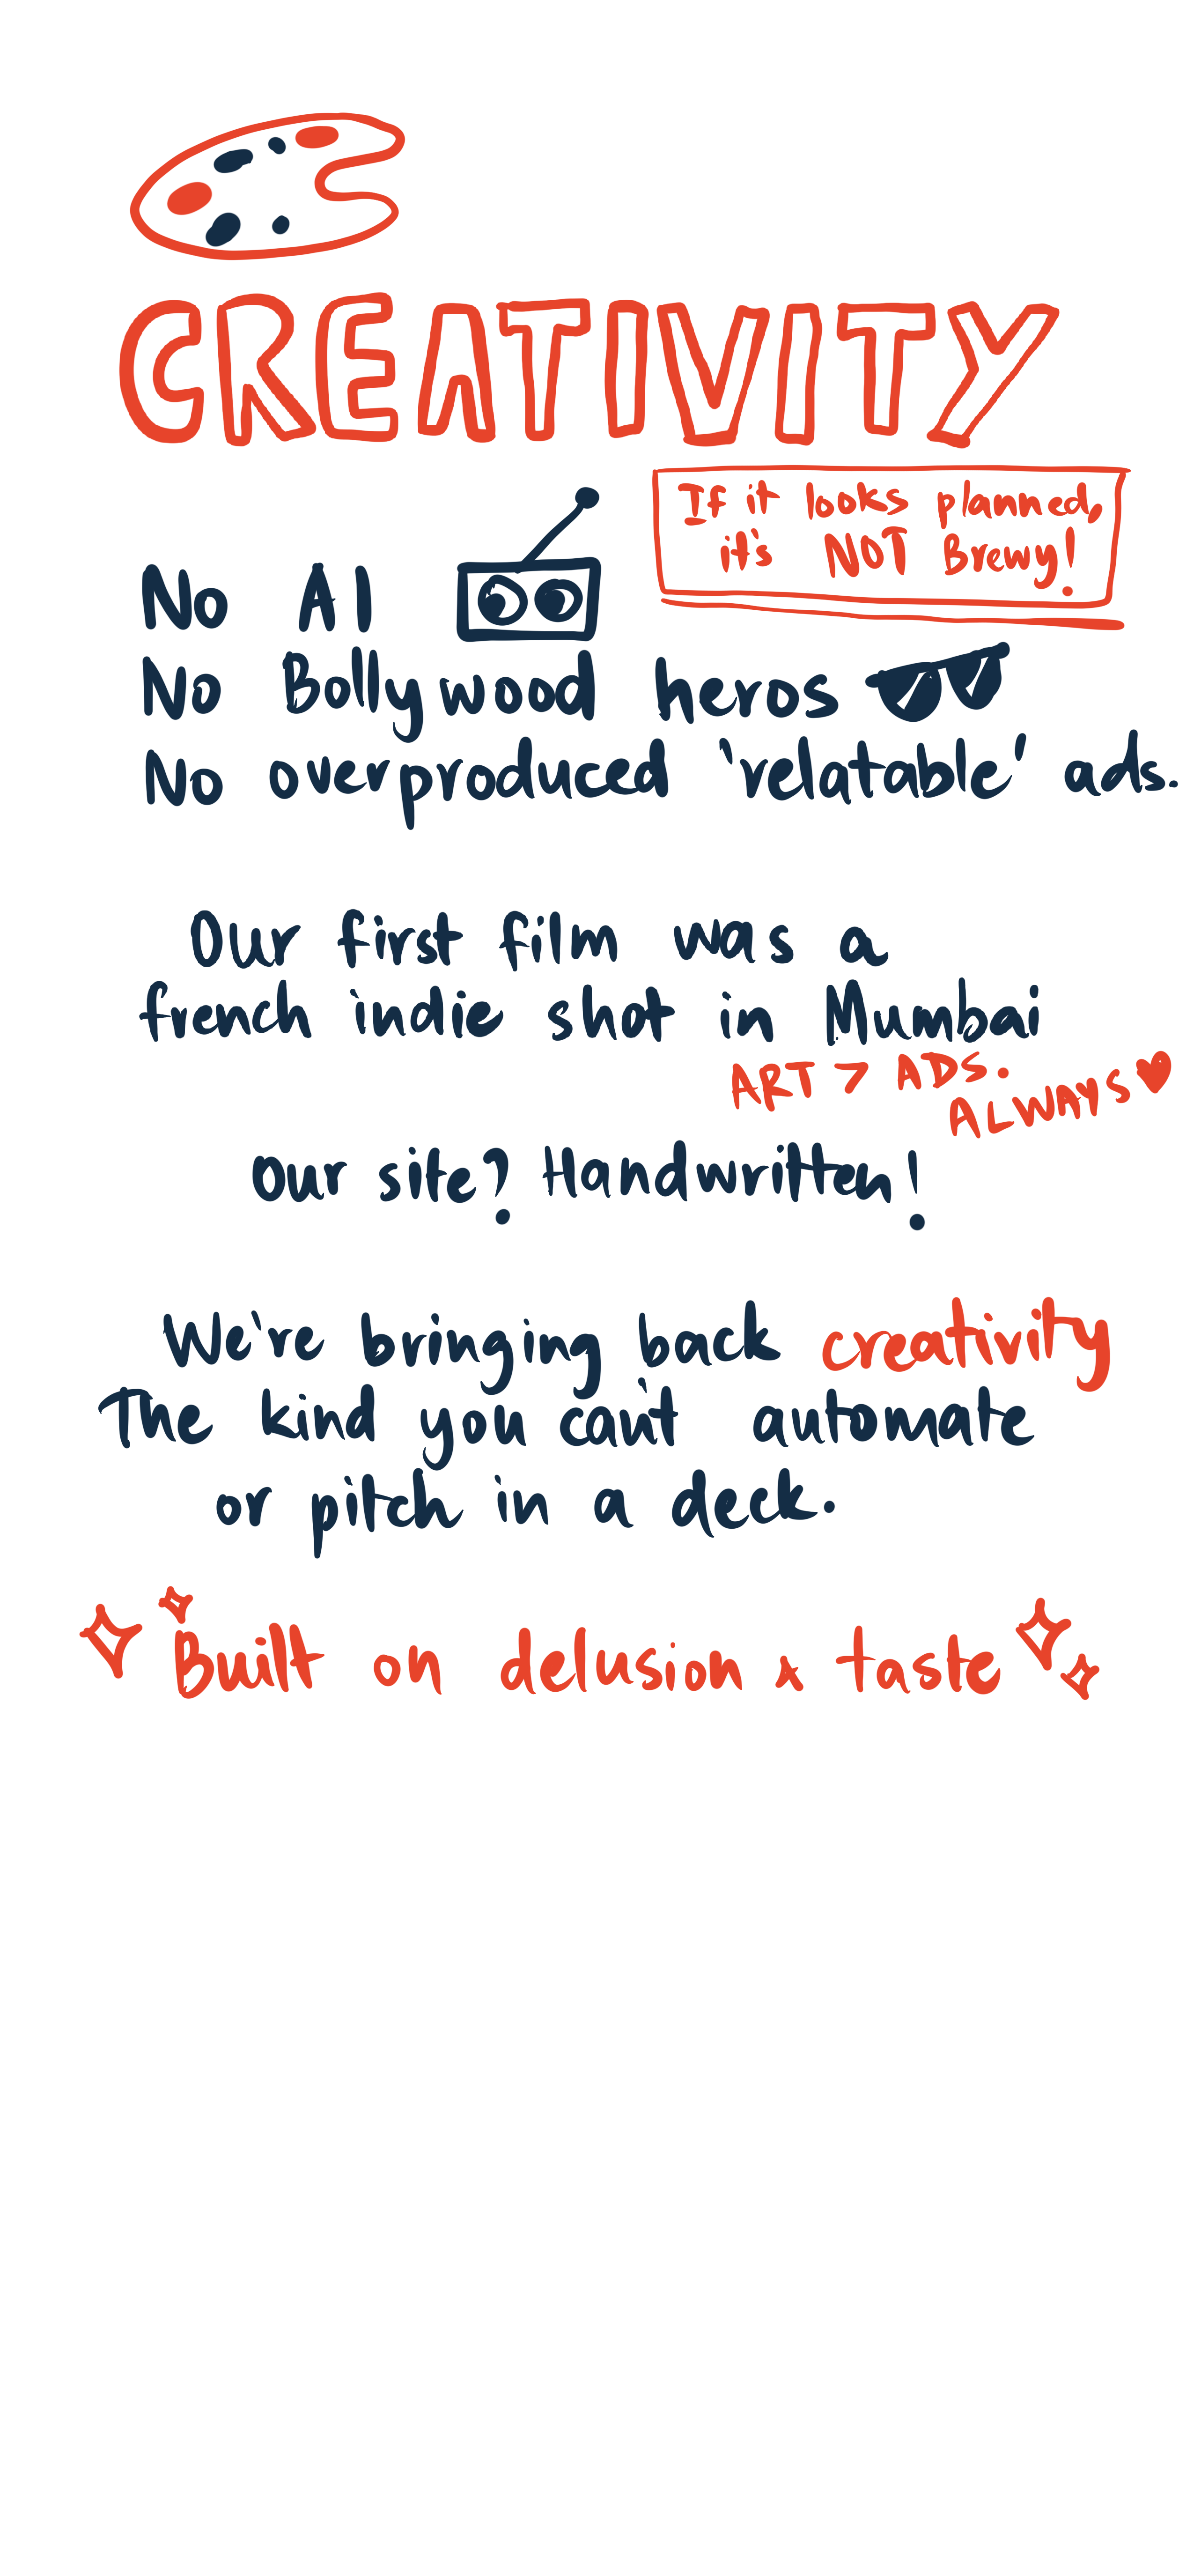 CREATIVITY
If it looks planned,
it's NOT Brewy!
No AI
No Bollywood heros
No overproduced 'relatable' ads.
Our first film was a
french indie shot in Mumbai
ART > ADS.
ALWAYS ♥
Our site? Handwritten!
We're bringing back creativity
The kind you can't automate
or pitch in a deck.
Built on delusion & taste